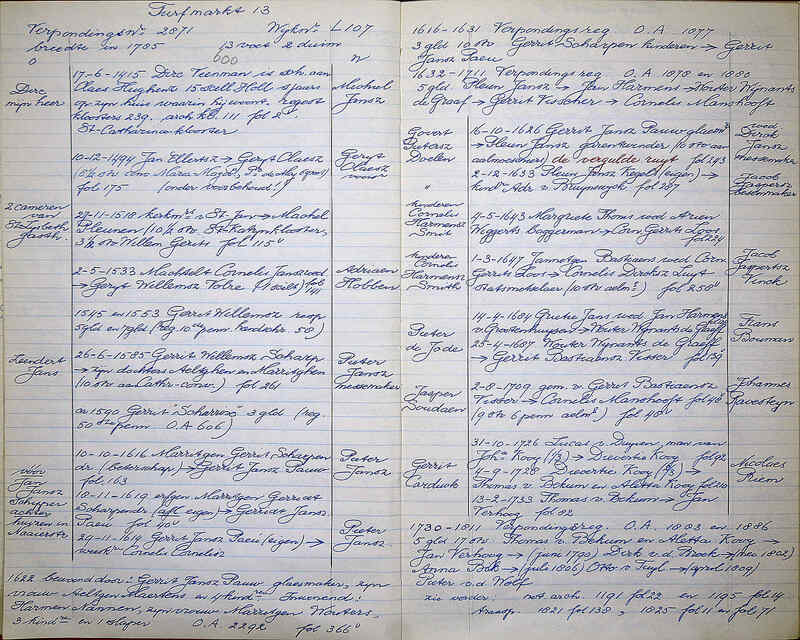 Turfmarkt 13
Verpondingsnr 2871 Wijknr L 107
breedte in 1785 13 voet 2 duim
0 000 n
Dirc
mijn heer
17-6-1415 Dirc Teenman is sch. aan
Claes Hughenz 15 sch Holl. sjaers
op zijn huis waarin hij woont. regest
kloosters 239. arch kl. 111 fol 2v
St-Catharinaklooster
Michiel
Jansz
10-12-1494 Jan Ellertsz → Geryt Claesz
fol 175 (onder voorbehoud!)
Geryt
Claesz
voor
2 cameren
van
St Lijsbeth
gasth.
27-11-1518 kerkmrs v. St-Jan → Machtel
Pleunen (10½ stv. St-Katrijnklooster,
3½ stv. Willem Gerits fol 115v
2-5-1533 Machtelt Cornelis Jansz wed
→ Geryt Willemsz Tolre fol
141
Adriaen
Hobben
1545 en 1553 Gerrit Willemsz resp
5 gld en 7 gld (Reg. 10e penn. kendschr 58)
Leendert
Jans
26-6-1585 Gerrit Willemsz Scharp
→ zijn dochters Aeltghen en Marritghen
(10 stv aan Cathr-conv.) fol 261
Pieter
Jansz
messemaker
en 1590 Gerrit "Scherrix" 3 gld (reg.
50ste penn O.A 606)
voor
Jan
Jansz
Schijper
achter
huijsen in
Naaierstr.
10-10-1616 Marritgen Gerrit Scharpen
dr (beterschap) → Gerrit Jansz Pauw
fol 163
Pieter
Jansz
10-11-1619 erfgen. Marritgen Gerrits
Scharpendr (zelf eigen) → Gerrit Jansz
Paeu fol 40v
29-11-1619 Gerrit Jansz Paeu (eigen) →
Cornelis Cornelisz
Pieter
Jansz
1622 bewoond door: Gerrit Jansz Pauw glaesmaker, zijn
vrouw Aeltgen Maertens en 4 kindren Inwonend:
Harmen Nannen, zijn vrouw Marritgen Wouters,
3 kindren en 1 slaper O.A 2292 fol 366v
1616-1631 Verpondingsreg. O.A. 1877
3 gld 10 stv Gerrit Scharpen kinderen → Gerrit
Jansz Paeu
1632-1711 Verpondingsreg O.A 1878 en 1880
5 gld Pleun Jansz → Jan Harmens → Wouter Wijnants
de Graaf → Gerrit Visscher → Cornelis Manshooft
Govert
Pietersz
Doelen
16-10-1626 Gerrit Jansz Pauw glaesmr
→ Pleun Jansz garentwinder (10 stv aan
aalmoeshuis) de vergulde ruyt fol 243
wed
Dirck
Jansz
messemaker
"
2-12-1633 Pleun Jansz Kegels (eigen) →
kindren Adr. v Bruynswyck fol 207
Jacob
Jaspersz
besemmaker
kinderen
Cornelis
Harmensz
Smit
4-5-1643 Margriete Thonis wed Arien
Wiggerts baggerman → Corn. Gerrits Loos
fol 224
kinderen
Cornelis
Harmensz
Smith
1-3-1647 Jannetgen Bastiaens wed Corn.
Gerrits Loos → Cornelis Dircksz Luyt
statsmetselaer (10 stv aelms) fol 250v
Jacob
Jaspertsz
Vinck
Pieter
de Jode
14-4-1684 Grietie Jans wed Jan Harmens
v Grootenhuysen → Wouter Wijnants de Graeff
25-4-1687 Wouter Wijnants de Graeff
→ Gerrit Bastiaensz Visser fol 159
Frans
Bouman
Jasper
Soudaen
2-8-1709 gem. v. Gerrit Bastiaensz
Visser → Cornelis Manshooft fol 48v
(9 stv 6 penn aelms) fol 48v
Johannes
Ravesteyn
Gerrit
Carduck
31-10-1726 Lucas v. Duynen, man van
Joha Kooy (1/3) → Dieverte Kooy fol 92
4-9-1728 Dieverte Kooy (1/3) →
Thomas v. Bokum en Aletta Kooy
13-2-1733 Thomas v. Bokum → Jan
Verhoog fol 82
Nicolaes
Priem
1730-1811 Verpondingsreg. O.A. 1883 en 1886
5 gld 17 stv Thomas v. Bokum en Aletta Kooy →
Jan Verhoog → (juni 1790) Dirk v. d. → (dec 1802)
Anna Bok → (july 1806) Otto v Tuyl → (april 1809)
Pieter v.d. Wolf
zie verder: not. arch. 1191 fol 22 en 1195 fol 14
transp. 1821 fol 138, 1825 fol 11 en fol 71